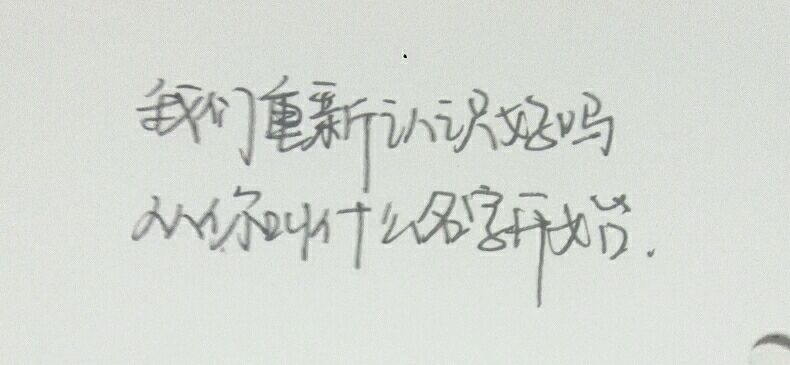 我们重新认识好吗
从你叫什么名字开始.